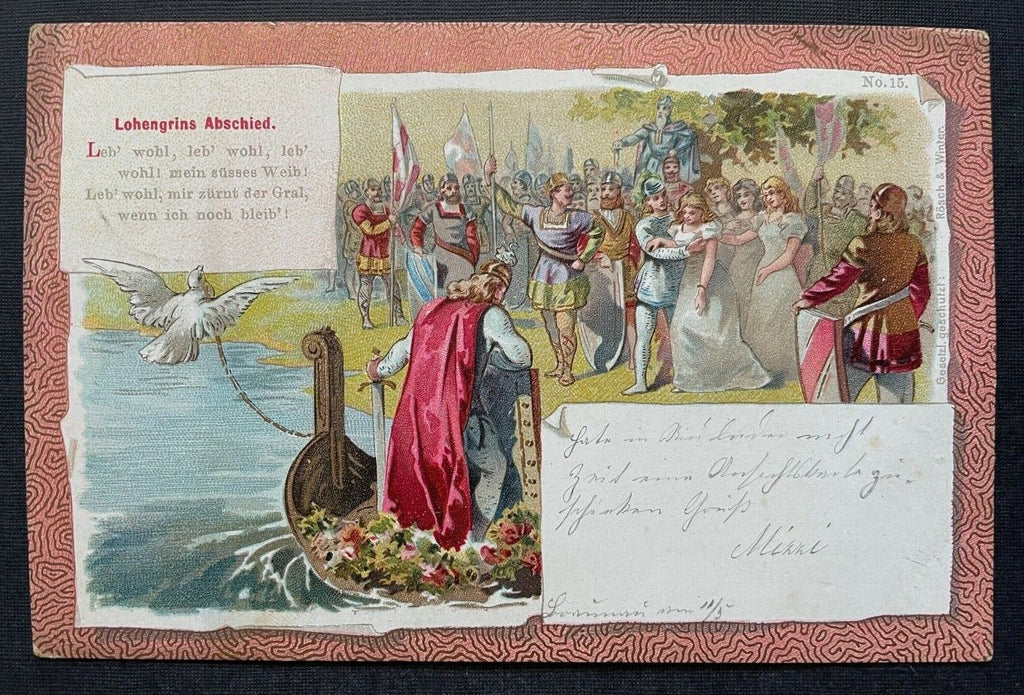 No. 15.
Lohengrins Abschied.
Leb' wohl, leb' wohl, leb'
wohl! mein süsses Weib!
Leb' wohl, mir zürnt der Gral,
wenn ich noch bleib'!
Gesetzl. geschützt: Rösch & Winter.
hate in leider nicht
Zeit eine Ansichtskarte zu
schicken Gruß
Mizzi
Braunau am 11/5